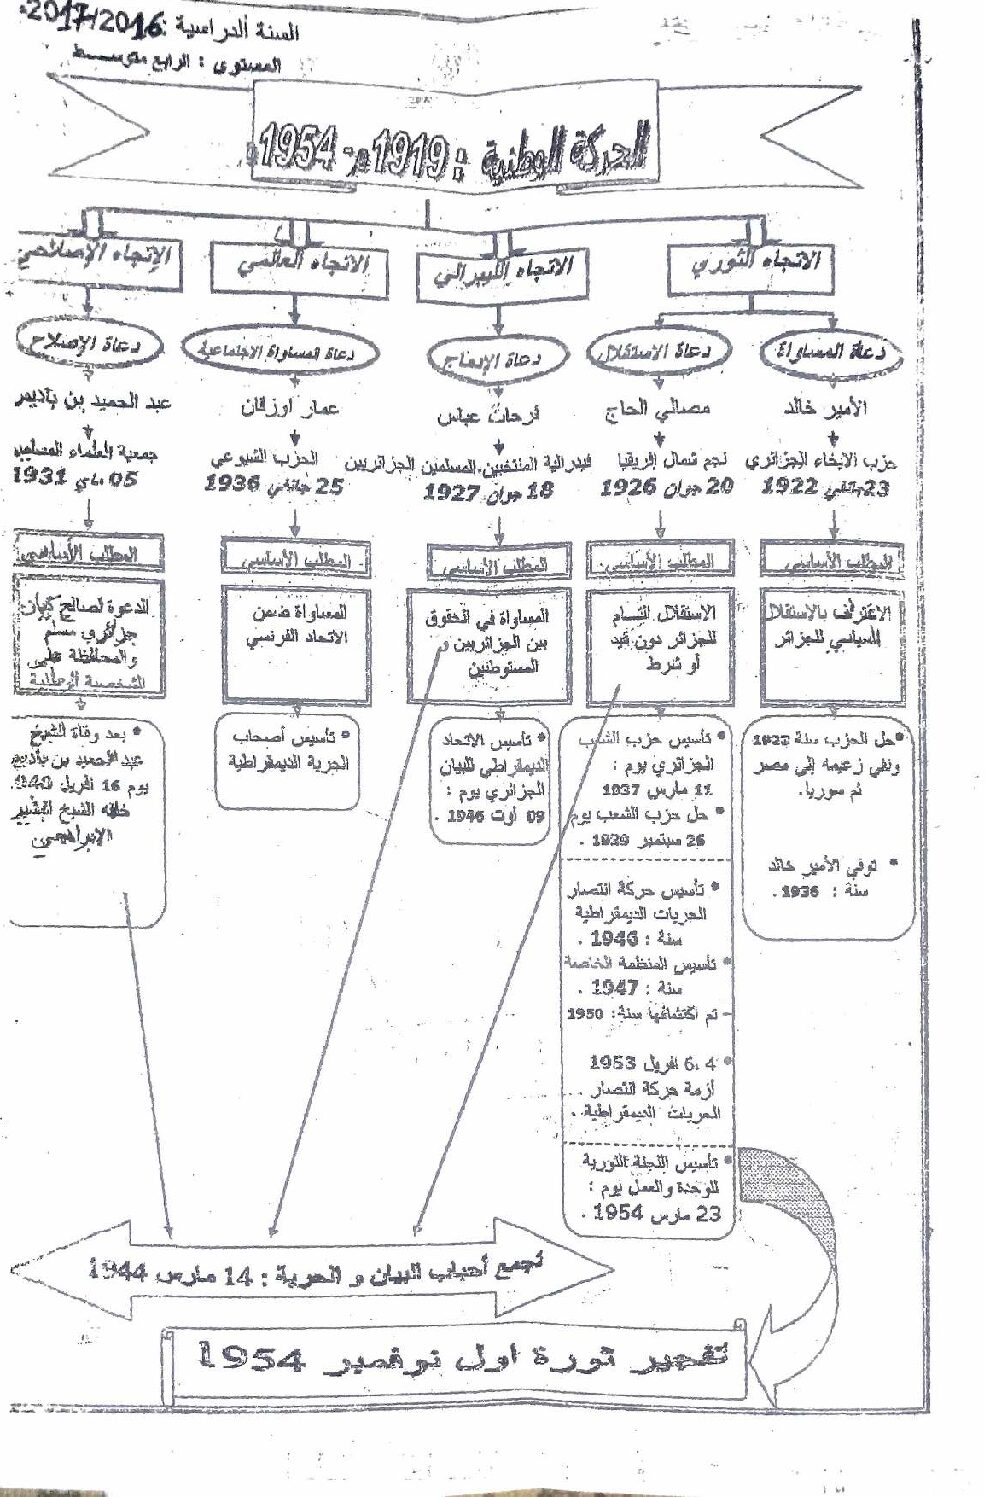 السنة الدراسية : 2017/2016م
المستوى : الرابع متوسط
الحركة الوطنية : 1919م- 1954م
الاتجاه الثوري
الاتجاه الليبرالي
الاتجاه العالمي
الإتجاه الإصلاحي
دعاة المساواة
دعاة الاستقلال
دعاة الإدماج
دعاة المساواة الاجتماعية
دعاة الإصلاح
الأمير خالد
مصالي الحاج
فرحات عباس
عمار اوزقان
عبد الحميد بن باديس
حزب الإخاء الجزائري
23جانفي 1922
نجم شمال إفريقيا
20 جوان 1926
فيدرالية المنتخبين المسلمين الجزائريين
18 جوان 1927
الحزب الشيوعي
25 جانفي 1936
جمعية العلماء المسلمين
05 ماي 1931
المطلب الأساسي
المطلب الأساسي
المطلب الأساسي
المطلب الأساسي
المطلب الأساسي
الاعتراف بالاستقلال
السياسي للجزائر
الاستقلال التام
للجزائر دون قيد
أو شرط
المساواة في الحقوق
بين الجزائريين و
المستوطنين
المساواة ضمن
الاتحاد الفرنسي
الدعوة لصالح كيان
جزائري مسلم
والمحافظة على
الشخصية الوطنية
• حل الحزب سنة 1923
ونفي زعيمه إلى مصر
ثم سوريا.
• توفي الأمير خالد
سنة : 1936 .
• تأسيس حزب الشعب
الجزائري يوم :
11 مارس 1937
• حل حزب الشعب يوم
26 سبتمبر 1939 .
• تأسيس حركة انتصار
الحريات الديمقراطية
سنة : 1946 .
• تأسيس المنظمة الخاصة
سنة : 1947 .
- تم اكتشافها سنة: 1950
• 4، 6 افريل 1953
أزمة حركة انتصار
الحريات الديمقراطية .
• تأسيس اللجنة الثورية
للوحدة والعمل يوم :
23 مارس 1954 .
• تأسيس الاتحاد
الديمقراطي للبيان
الجزائري يوم :
09 أوت 1946 .
• تأسيس أصحاب
الحرية الديمقراطية
• بعد وفاة الشيخ
عبد الحميد بن باديس
يوم 16 افريل 1940.
خلفه الشيخ البشير
الإبراهيمي
تجمع أحباب البيان و الحرية : 14 مارس 1944
تفجير ثورة اول نوفمبر 1954